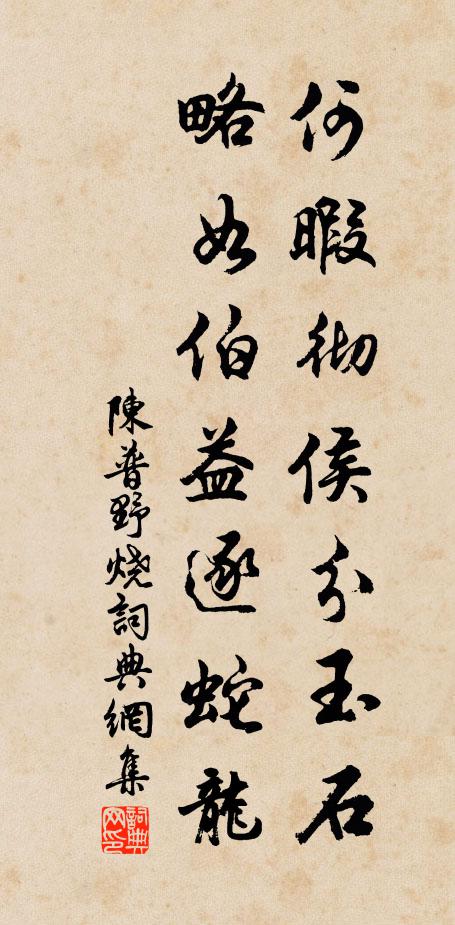 何暇彻侯分玉石
略如伯益逐蛇龍
陳普野烧詞典網集
詞典网印